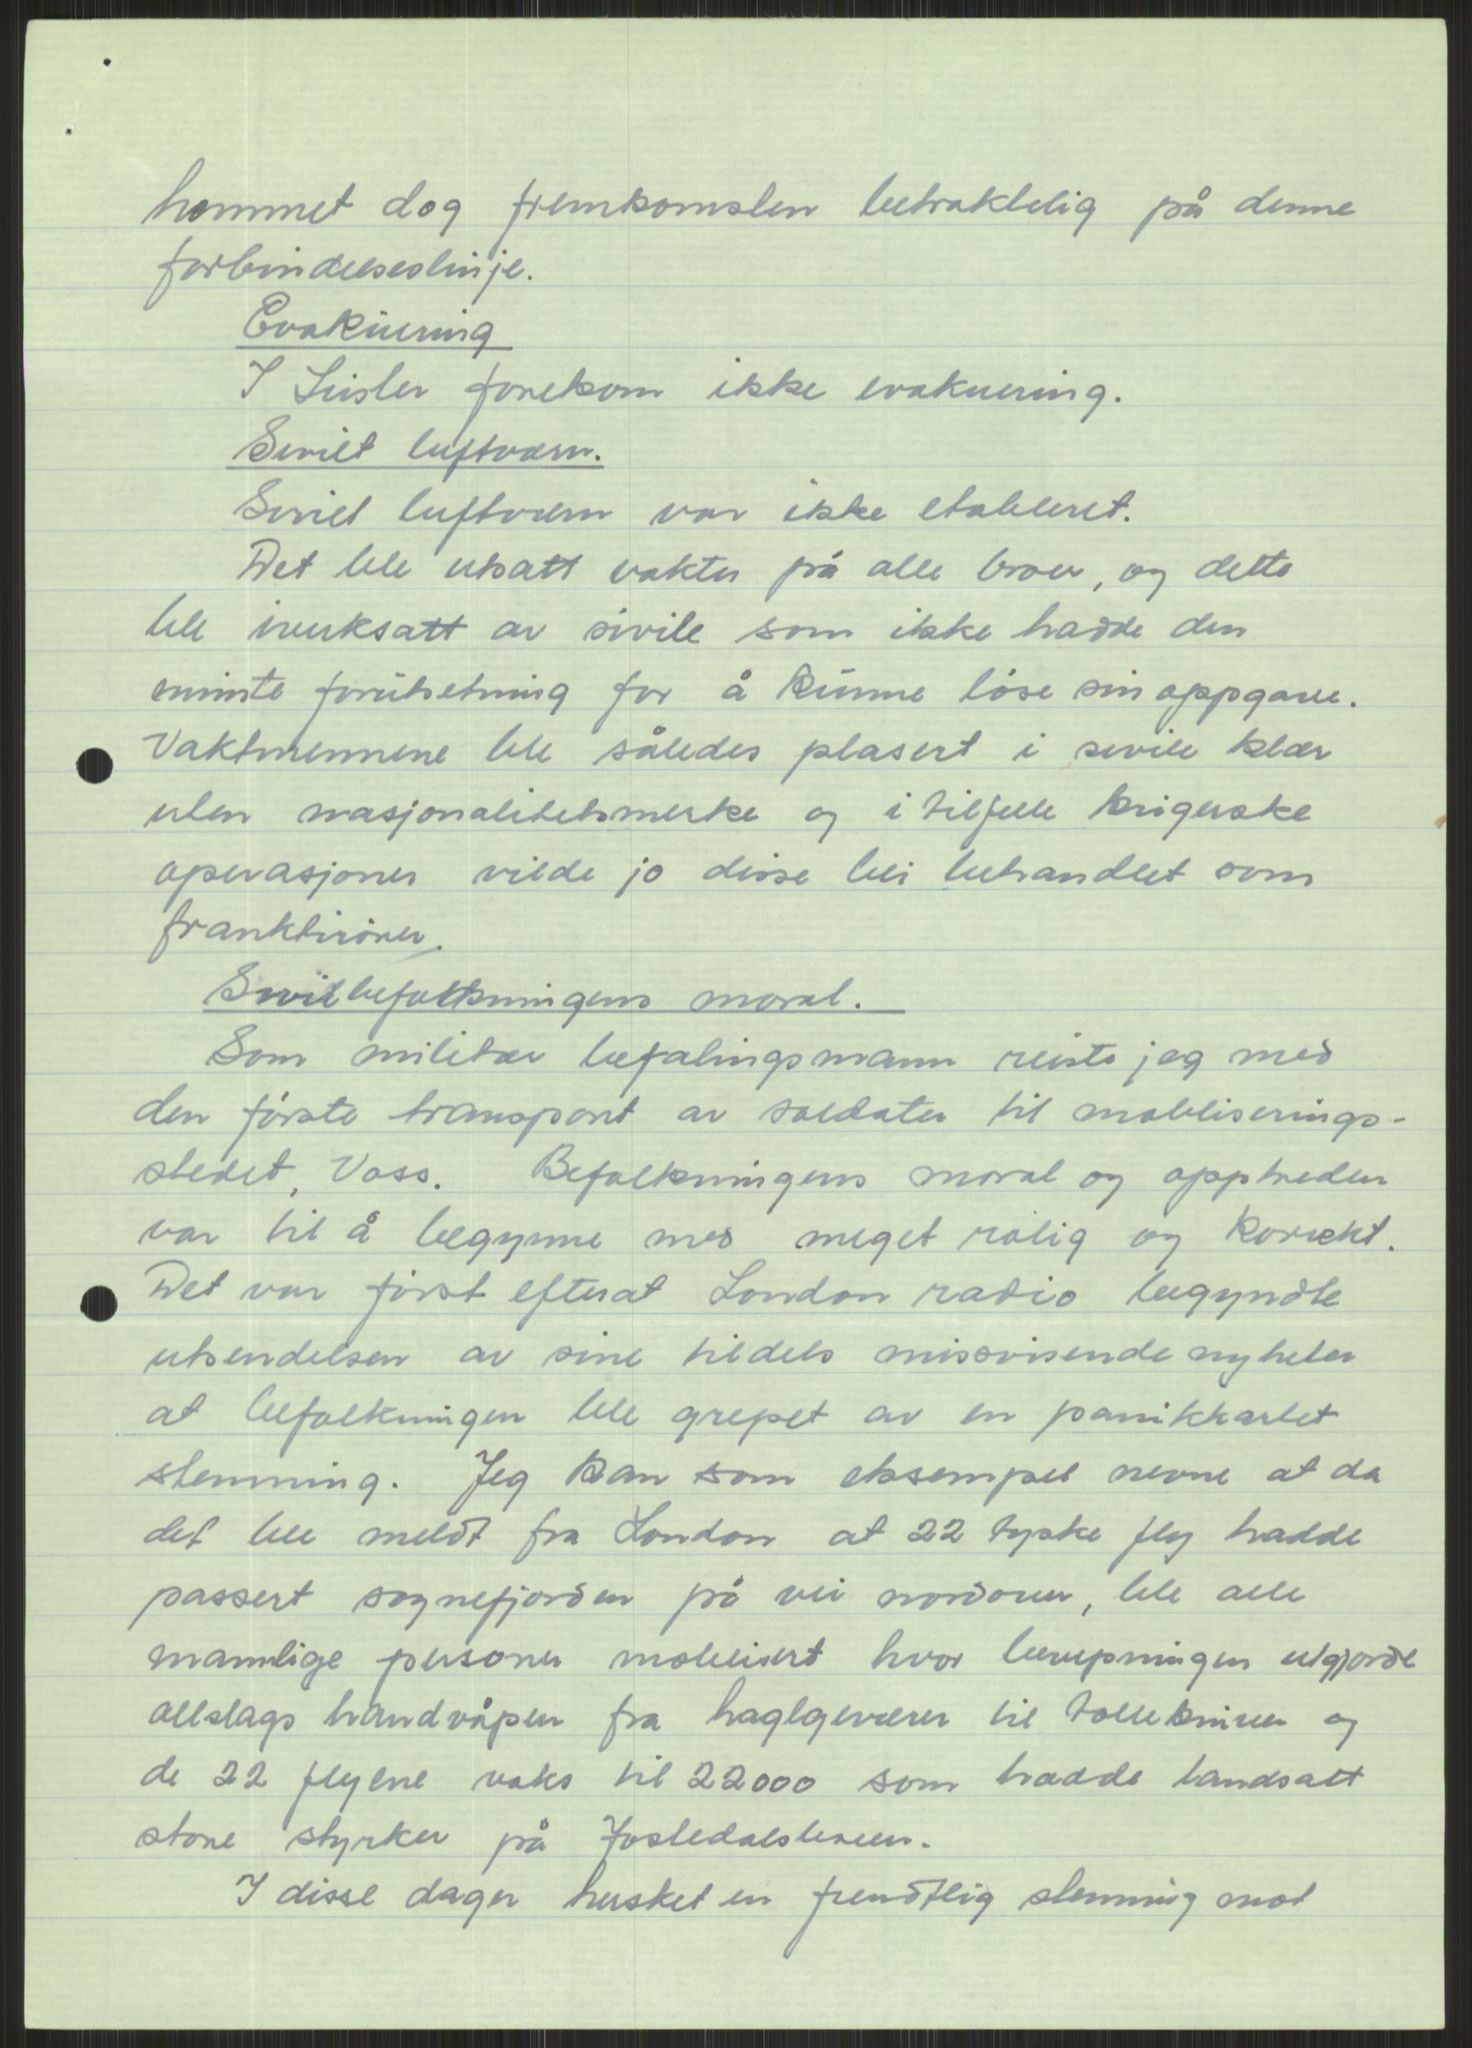 hemmet dog fremkomsten betraktelig på denne
forbindelseslinje.
Evakuering
I Luster forekom ikke evakuering.
Sivilt luftvern.
Sivilt luftvern var ikke etableret.
Det ble utsatt vakter på alle broer, og dette
ble iverksatt av sivile som ikke hadde den
minste forutsetning for å kunne løse sin oppgave.
Vaktmennene ble således plasert i sivile klær
uten nasjonalitetsmerke og i tilfelle krigerske
operasjoner vilde jo disse bli behandlet som
franktirører.
Sivilbefolkningens moral.
Som militær befalingsmann reiste jeg med
den første transport av soldater til mobliserings-
stedet, Voss. Befolkningens moral og opptreden
var til å begynne med meget rolig og korrekt.
Det var først efterat London radio begyndte
utsendelsen av sine tildels missvisende nyheter
at befolkningen ble grepet av en panikkartet
stemning. Jeg kan som eksempel nevne at da
det ble meldt fra London at 22 tyske fly hadde
passert sognefjorden på vei nordover, ble alle
mannlige personer mobilisert hvor bevepningen utgjorde
allslags håndvåpen fra haglgeværer til tollekniver og
de 22 flyene vaks til 22000 som hadde landsatt
store styrker på Jostedalsbreen.
I disse dager hersket en fiendtlig stemning mot